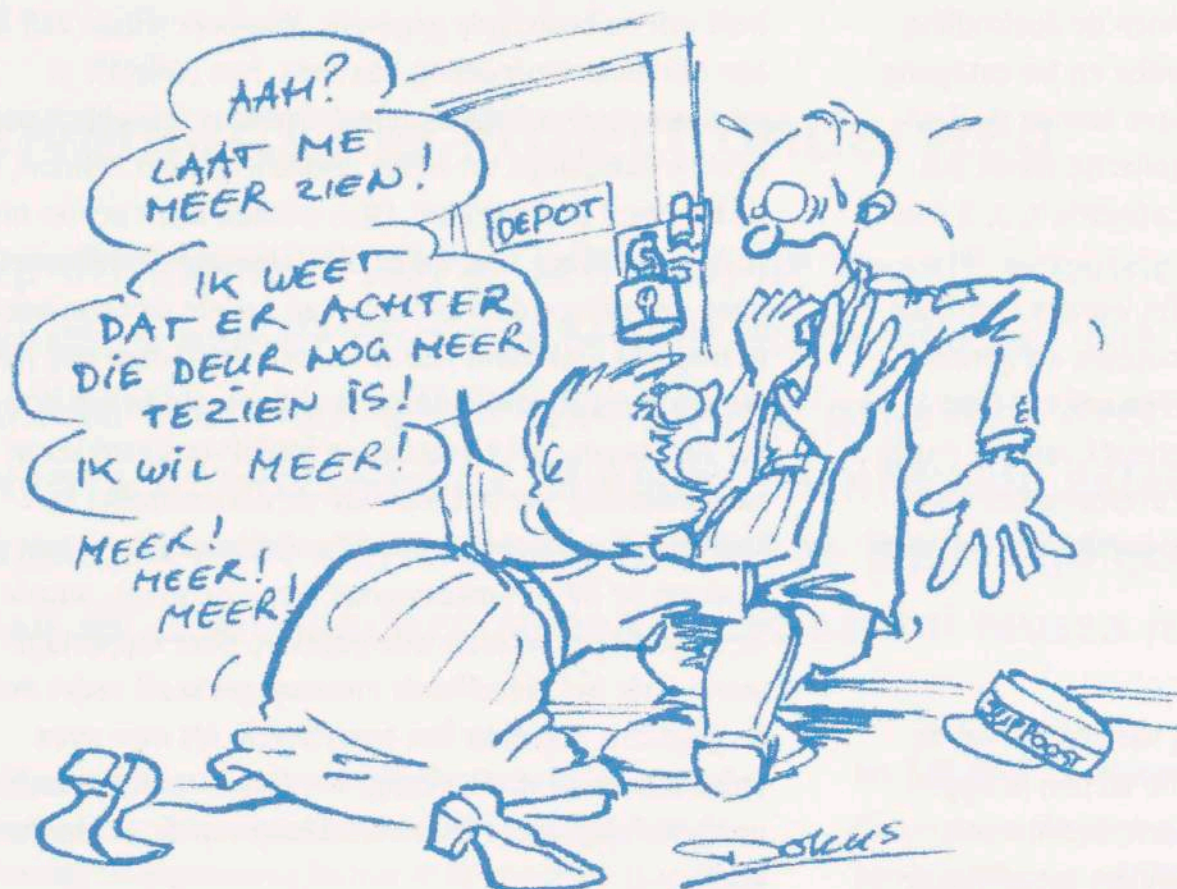 AAH?
LAAT ME
MEER ZIEN!
IK WEET
DAT ER ACHTER
DIE DEUR NOG MEER
TEZIEN IS!
IK WIL MEER!
MEER!
MEER!
MEER!
DEPOT
SUPPOOST